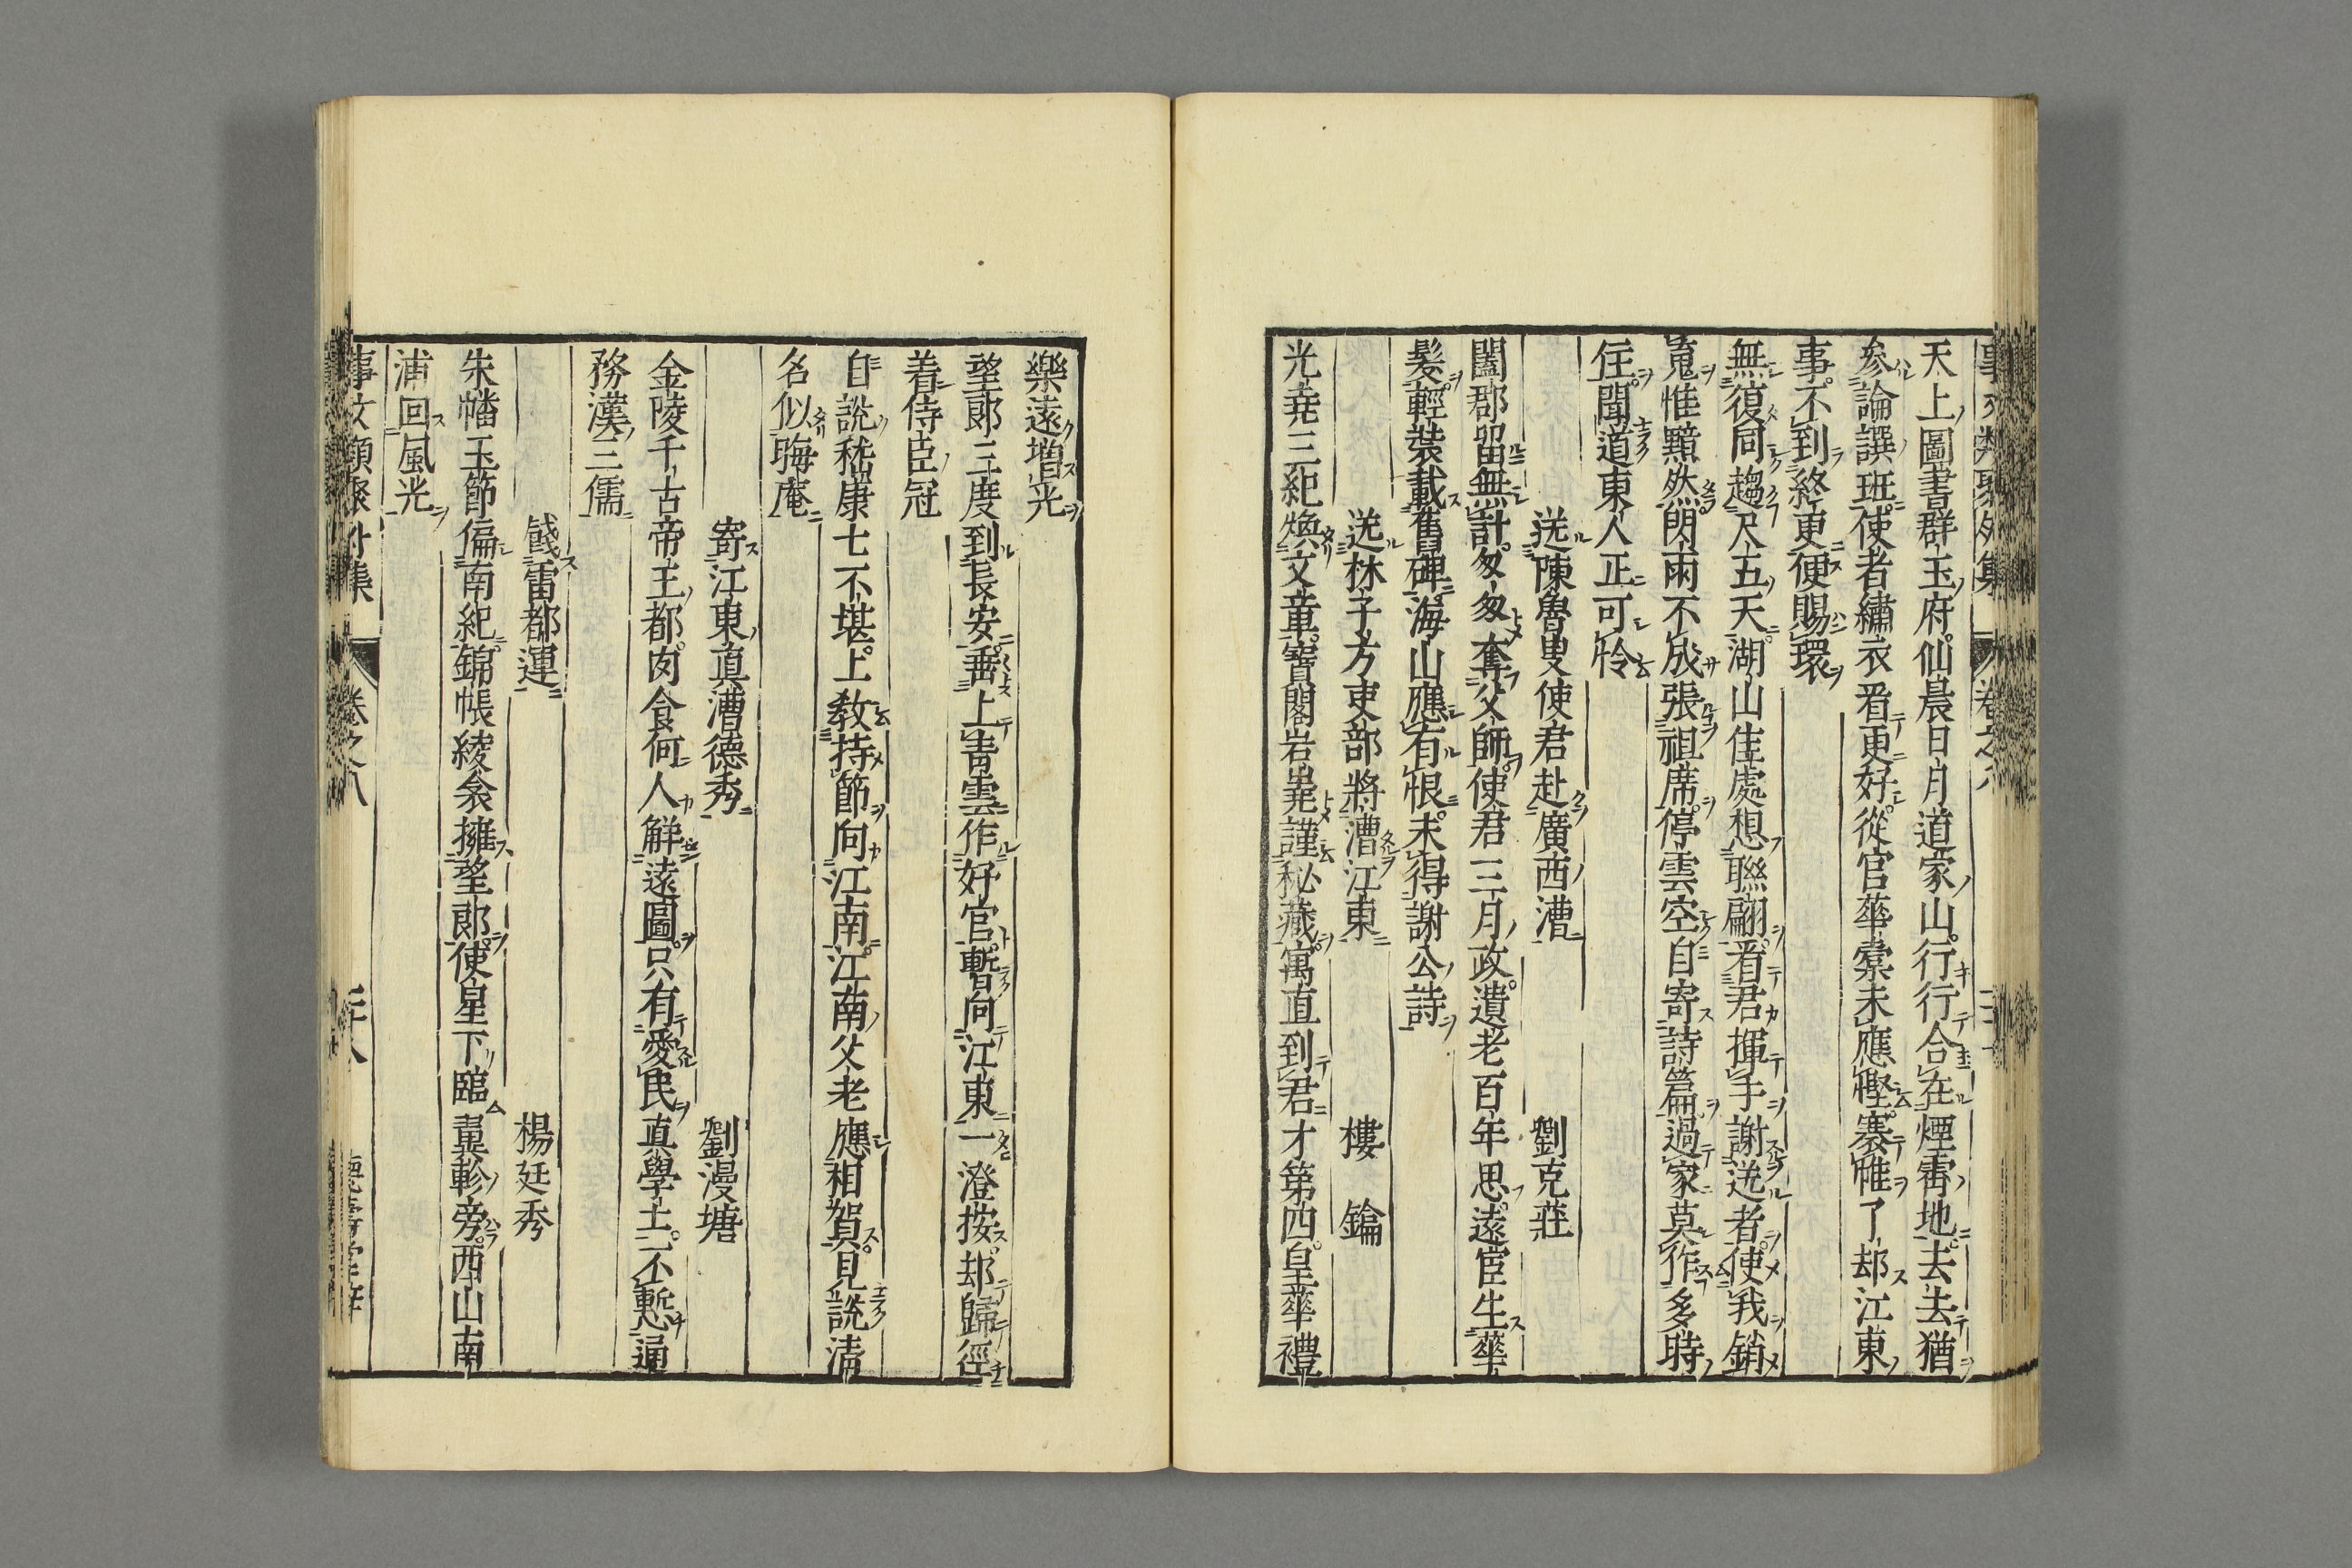 天上圖書群玉府仙晨日月道家山行行合在煙霄地去去猶
參論譔班使者繡衣看更好從官華橐未應慳褰帷了却江東
事不到終更便賜環
無復同趨尺五天湖山佳處想聯翩看君揮手謝送者使我銷
䰟惟黯然閃雨不成張祖席停雲空自寄詩篇過家莫作多時
住聞道東人正可怜
送陳魯叟使君赴廣西漕 劉克莊
闔郡留無計匆匆奪父師使君三月政遺老百年思遠宦生華
髪輕裝載舊碑海山應有恨未得謝公詩
送林子方吏部將漕江東 樓鑰
光堯三紀煥文章寶閣岩嶤謹秘藏寓直到君才第四皇華禮
樂遠增光
望郞三度到長安垂上青雲作好官暫向江東一澄按却歸徑
着侍臣冠
自說嵇康七不堪上教持節向江南江南父老應相賀見說淸
名似晦庵
寄江東真漕德秀 劉漫塘
金陵千古帝王都肉食何人解遠圖只有愛民真學士不慙通
務漢三儒
餞雷都運 楊廷秀
朱幡玉節偏南紀錦帳綾衾擁望郞使星下臨翼軫旁西山南
浦回風光
卷之八